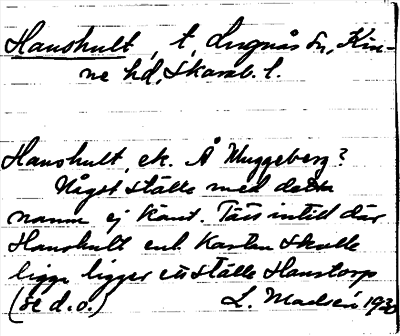 Hanshult, t, Lugnås sn, Kin-
ne hd, Skarab. l.
Hanshult, ek. Å Muggeberg?
Något ställe med detta
namn ej känt. Tätt intill där
Hanshult enl. kartan skulle
ligga ligger ett ställe Hanstorp
(se d.o.) L. Madsén 1930